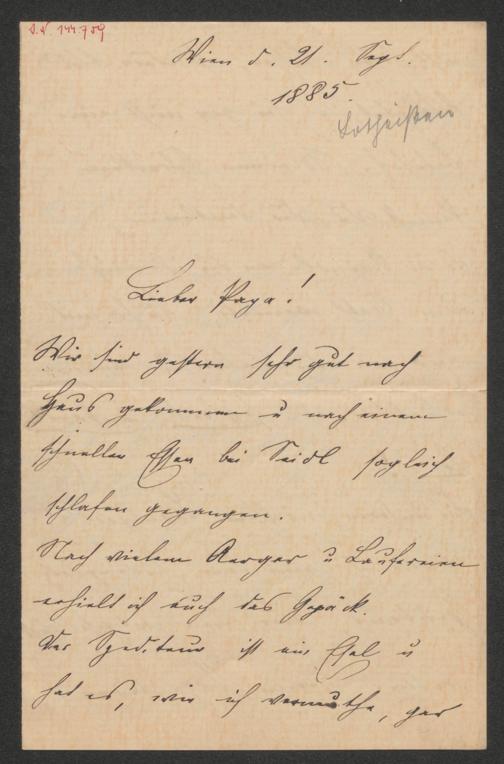 I.N. 144.759
Wien d. 21. Sept.
1885.
Lotheissen
Lieber Papa!
Wir sind gestern sehr gut nach
Haus gekommen u nach einem
schnellen Essen bei Seidl sogleich
schlafen gegangen.
Nach vielem Aerger u Laufereien
erhielt ich auch das Gepäck.
Der Spediteur ist ein Esel u
hat es, wie ich vermuthe, gar